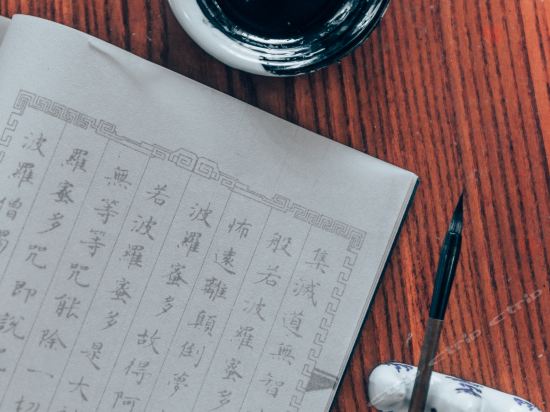 集滅道無智
般若波羅蜜多
怖遠離顛倒夢
波羅蜜多故得阿
若波羅蜜多是大
無等等咒能除一切
羅蜜多咒即說
波羅僧揭
ctrip